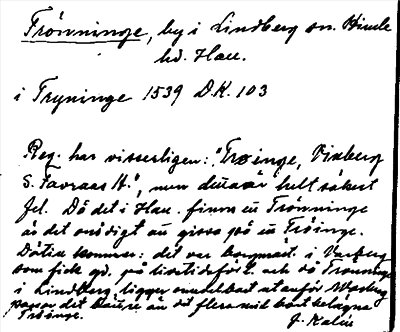 Trönninge, by i Lindberg sn. Himle
hd. Hall.
i Tryninge 1539 D.K. 103
Reg. har visserligen: "Trøinge, Vixberg
S. Favraas H.", men denna är helt säkert
fel. Då det i Hall. finns en Trönninge
är det onödigt att gissa på en Tröinge.
Därtill kommer: det var borgmäst. i Varberg
som fick gd. på livstidsförl. och då Trönninge
i Lindberg ligger omedelbart utanför Warberg
passar det bättre än det flera mil bort belägna
Tröinge.
J. Kalén